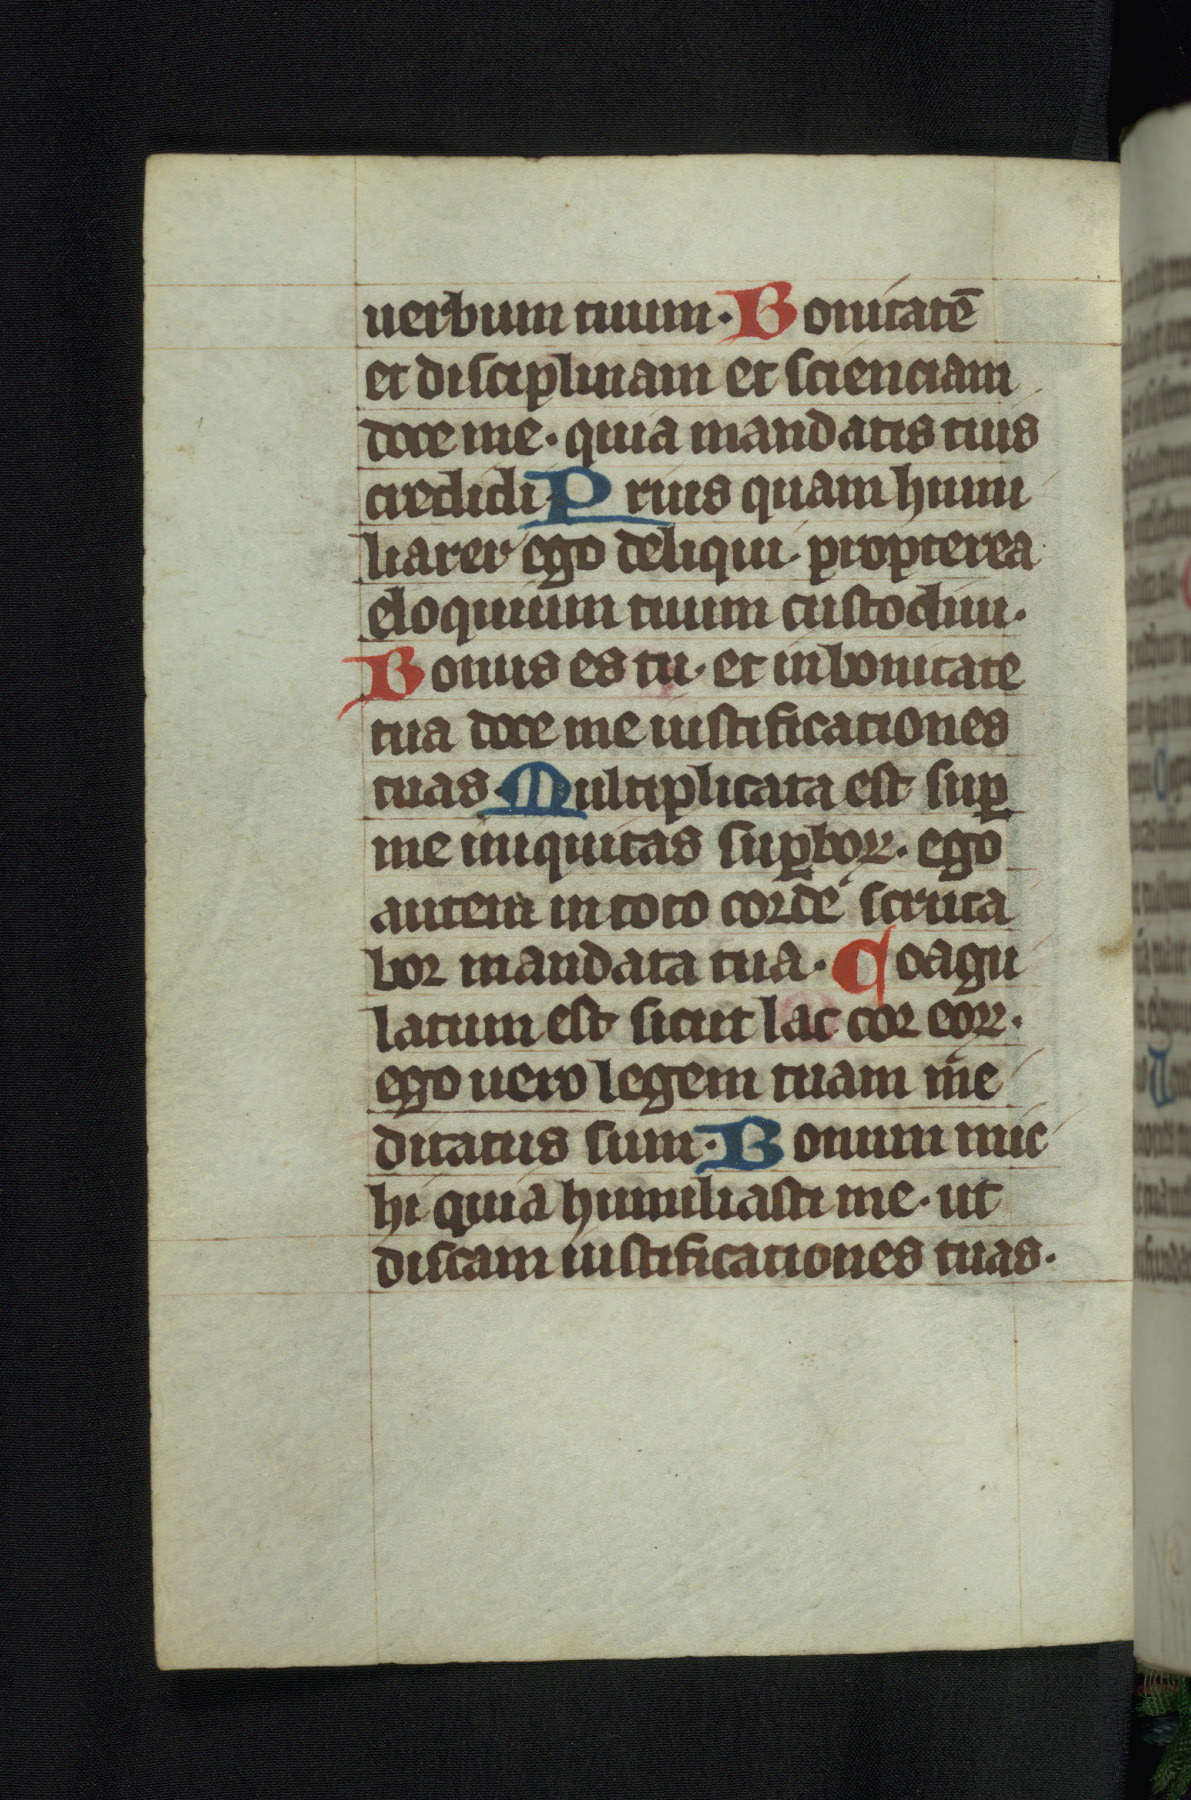 uerbum tuum · Bonitatē
et disciplinam et scienciam
doce me · quia mandatis tuis
credidi · Prius quam humi
liarer ego deliqui · propterea
eloquium tuum custodiui ·
Bonus es tu · et in bonitate
tua doce me iustificationes
tuas · Multiplicata est suꝑ
me iniquitas suꝑboꝝ · ego
autem in toto corde scruta
bor mandata tua · Coagu
latum est sicut lac cor eoꝝ ·
ego uero legem tuam me
ditatus sum · Bonum mic
hi quia humiliasti me · ut
discam iustificationes tuas ·